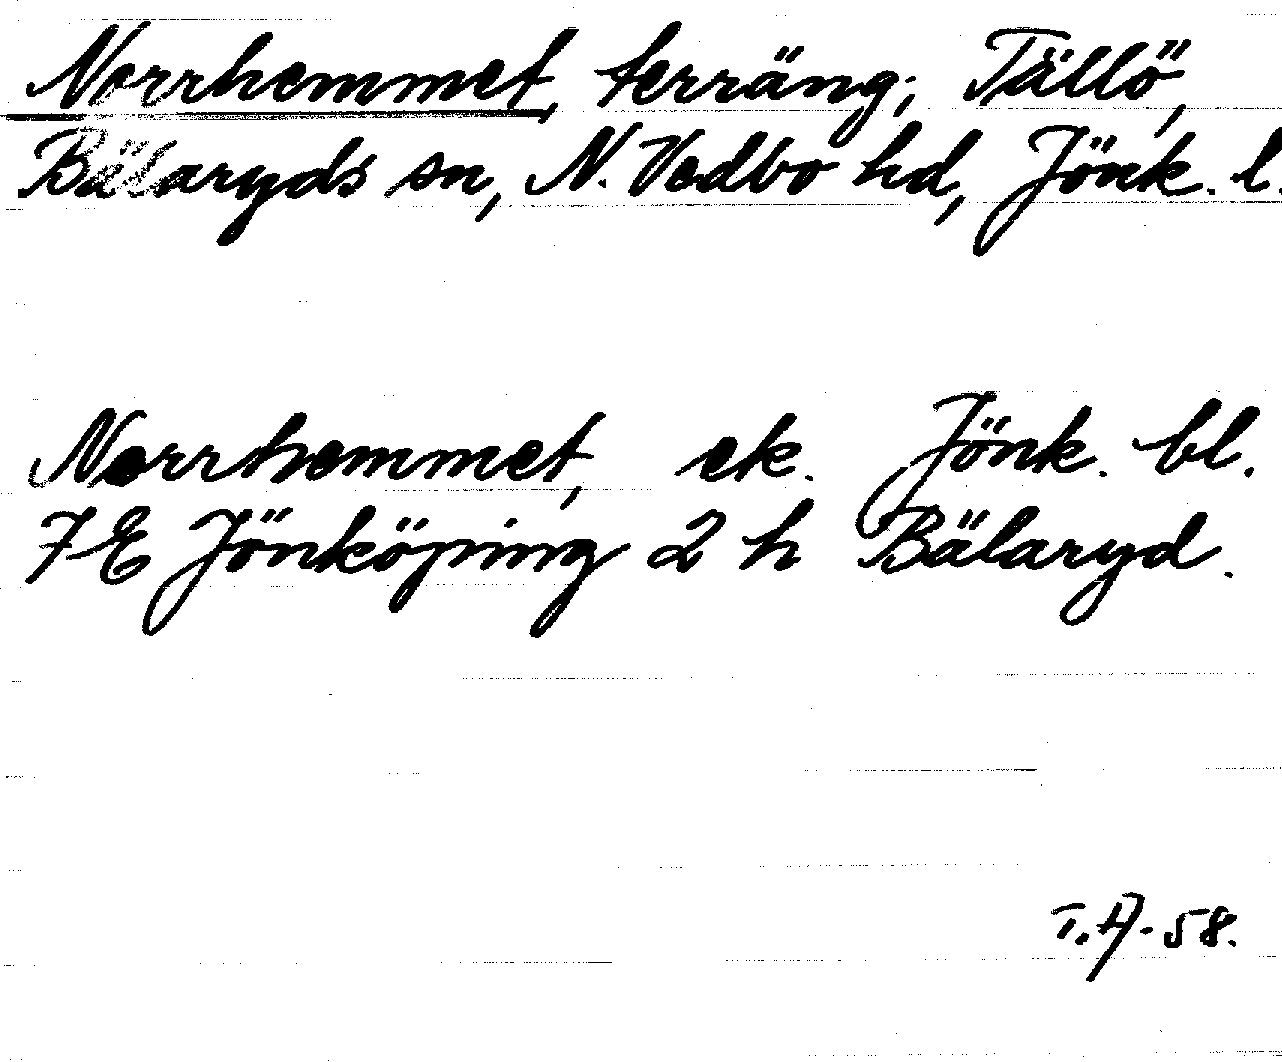 Norrhemmet, terräng; Tällö,
Bälaryds sn, N. Vedbo hd, Jönk. l.
Norrhemmet, ek. Jönk. bl.
7E Jönköping 2 h Bälaryd.
T.A-58.